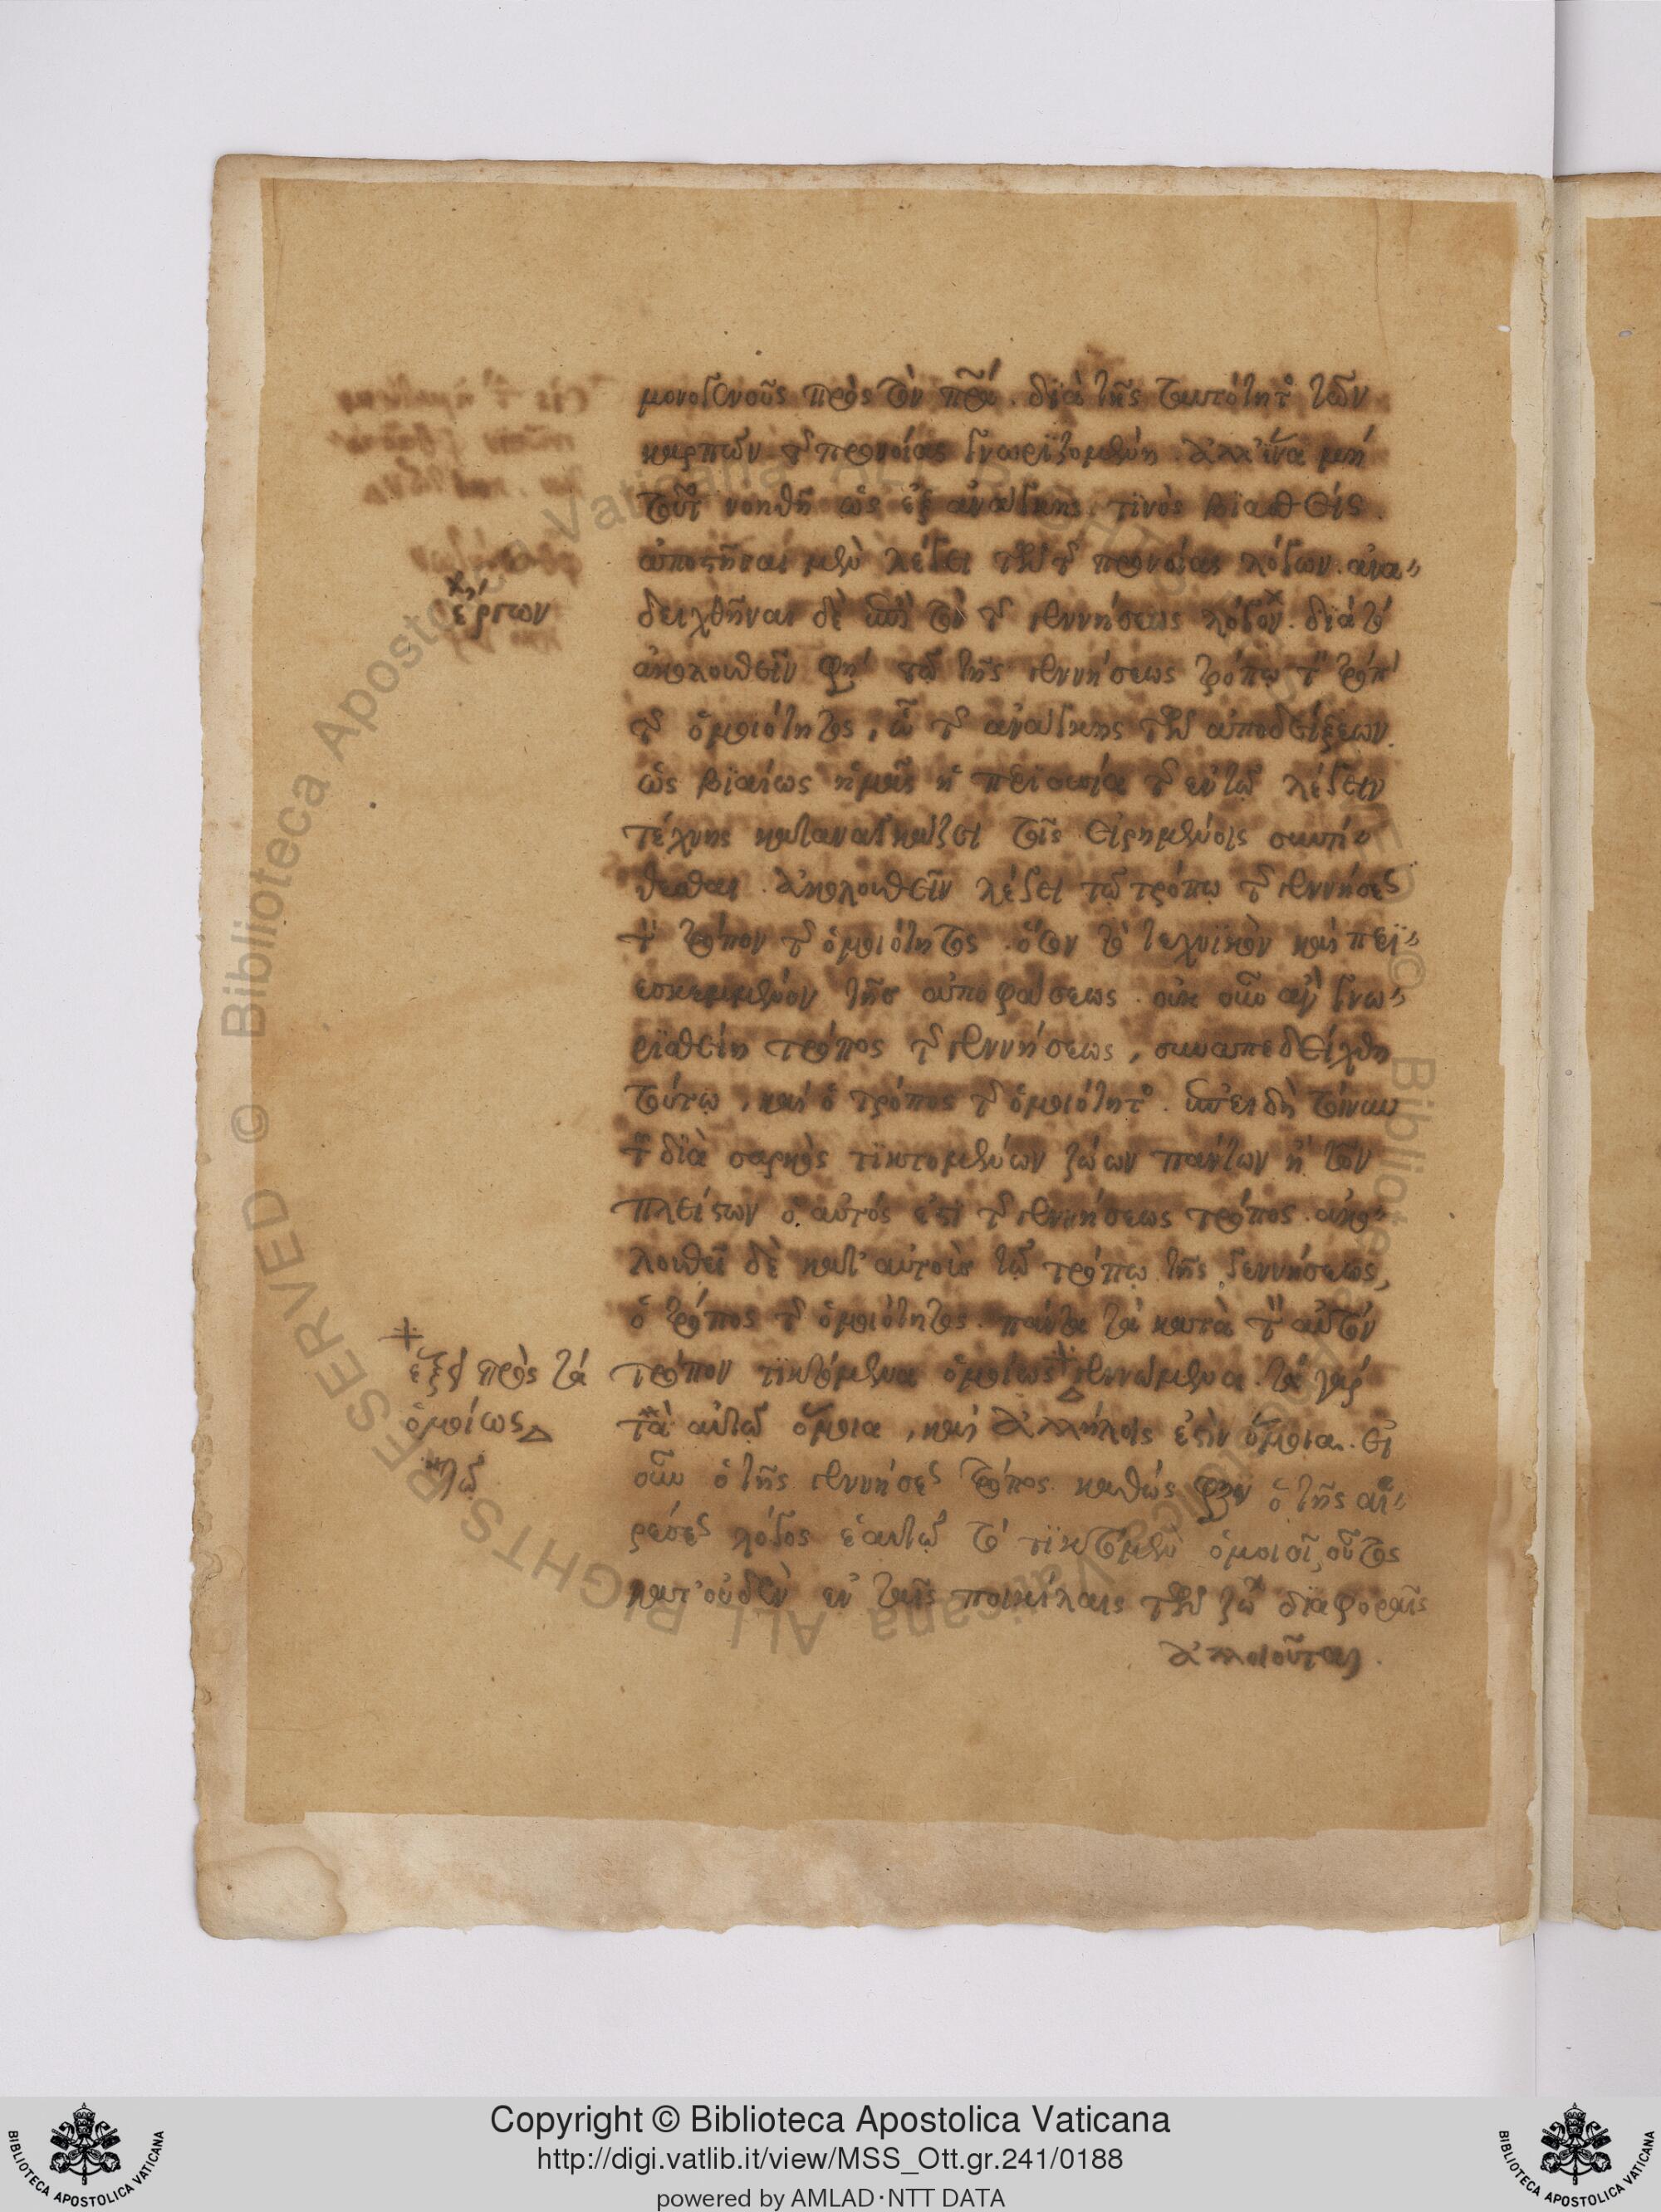 μονογενοῦς πρὸς τὸν πρα. διὰ τῆς ταυτότητ τῶν
καρπῶν τ προνοίας γνωριζομένη. ἀλλ' ἵνα μὴ
τοῦτ νοηθῆ ὡς ἐξ ἀνάγκης τινὸς βιασθείς.
ἀποστῆσαι μὲν λέγει τῶν τ προνοίας λόγων. ἀνα
δειχθῆναι δὲ ἐπὶ τὸν τ γεννήσεως λόγον. διὰ τὸ
ἀκολουθεῖν φη τῶ τῆς γεννήσεως τρόπω τ τρόπ
τ ὁμοιότητος, ὢ τ ἀνάγκης τῶν ἀποδείξεων.
ὡς βιαίως ἡμᾶς ἡ περιουσία τ ἐν τῶ λέγειν
τέχνης καταναγκάζει τοῖς εἰρημένοις συντί
θεσθαι. ἀκολουθεῖν λέγει τῶ τρόπω τ γεννήσε
τ τρόπον τ ὁμοιότητος. ὅσον τὸ τεχνικὸν καὶ περι
εσκεμμένον τῆς ἀποφάσεως. οὐκ οὖν ἂν γνω
ρισθείη τρόπος τ γεννήσεως, συναπεδείχθη
τούτω, καὶ ὁ τρόπος τ ὁμοιότητ. ἐπειδὴ τοίνυν
τ διὰ σαρκὸς τικτομένων ζώων πάντων ἢ τῶν
πλείστων ὁ αὐτός ἐστι τ γεννήσεως τρόπος. ἀκο
λουθεῖ δὲ κατ' αὐτοὺς τῶ τρόπω τῆς γεννήσεως,
ὁ τρόπος τ ὁμοιότητος. πάντα τὰ κατὰ τ αὐτὸν
τρόπον τικτόμενα ὁμοίως γεννώμενα. τὰ γὰρ
τὰ αὐτῶ ὅμοια, καὶ ἀλλήλοις ἐστὶν ὅμοια. εἰ
οὖν ὁ τῆς γεννήσε τρόπος καθώς φησιν ὁ τῆς αἱ
ρέσε λόγος ἑαυτῶ τὸ τικτόμεν ὁμοιοῖ, οὗτος
κατ' οὐδὲν ἐν ταῖς ποικίλαις τῶν ζώ διαφοραῖς
ἀλλοιοῦται.
ἔργων
ἕξει πρὸς τὰ
ὁμοίως
τῶ
Copyright © Biblioteca Apostolica Vaticana
http://digi.vatlib.it/view/MSS_Ott.gr.241/0188
powered by AMLAD·NTT DATA
BIBLIOTECA APOSTOLICA VATICANA
BIBLIOTECA APOSTOLICA VATICANA